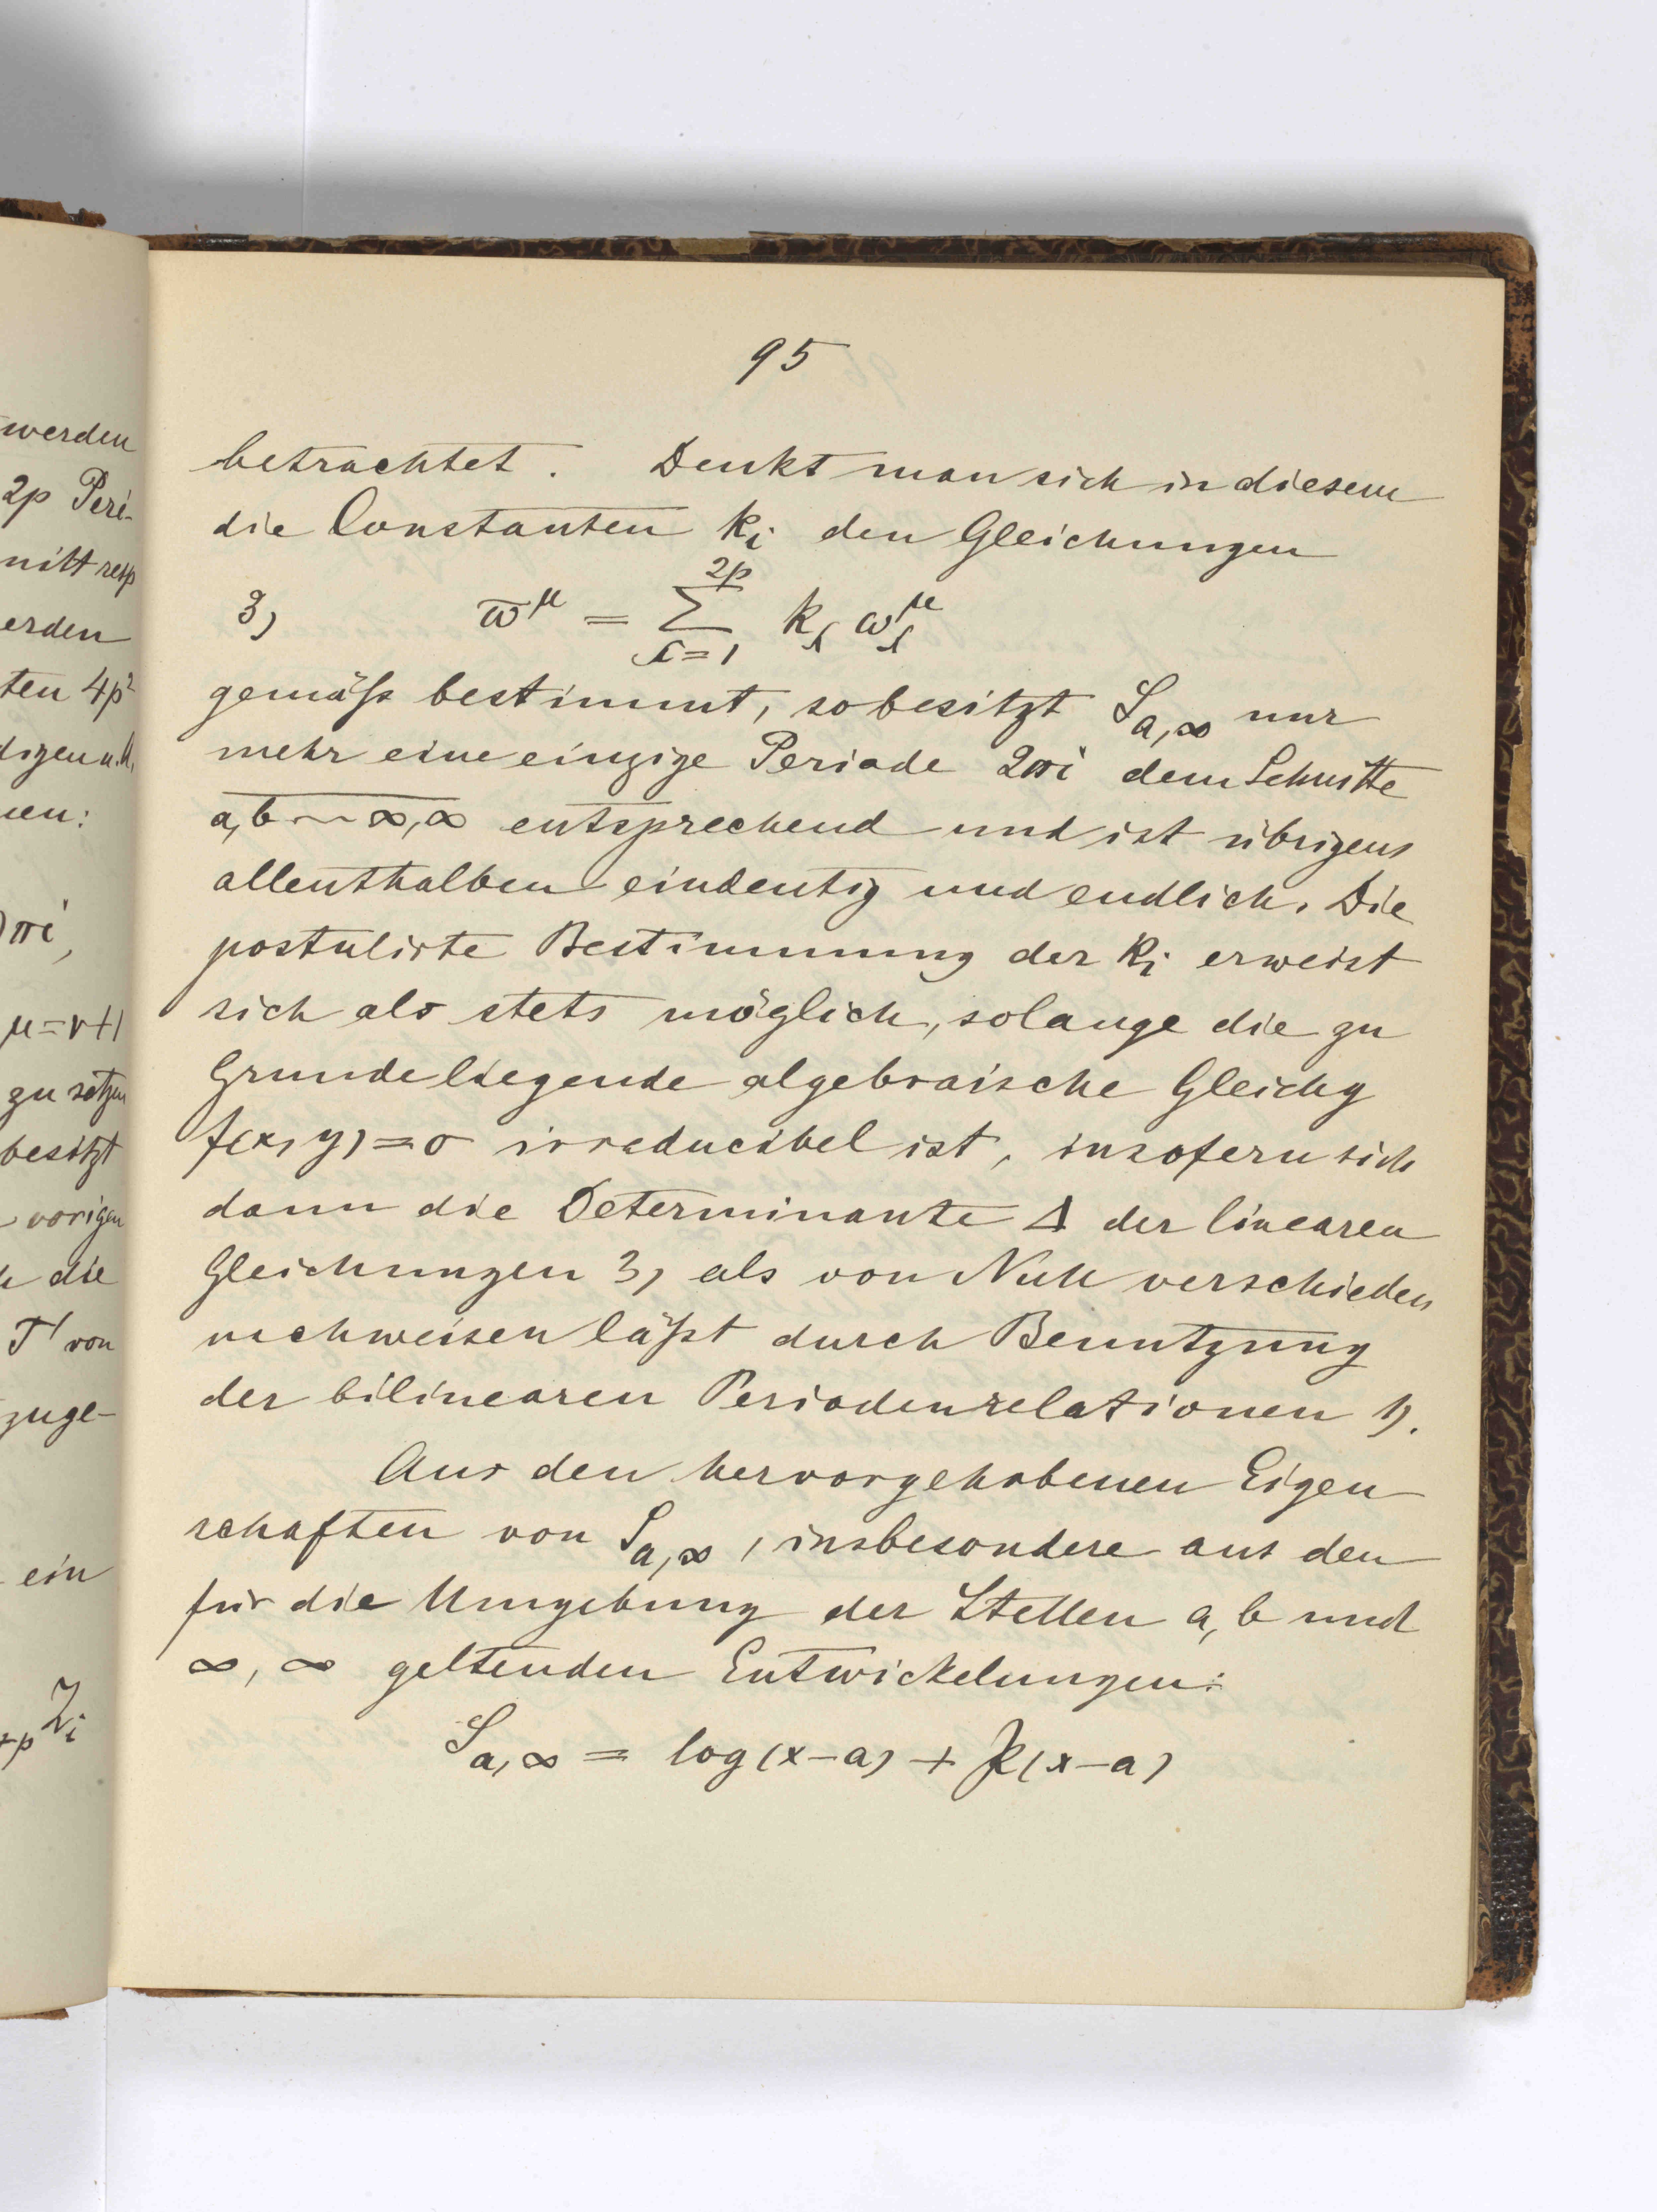 werden
2p Peri-
nitt resp
erden
ten 4p²
digen u. U.
nen:
)πi,
μ=r+1
zu setzen
besitzt
vorigen
die
T' von
zuge-
ein
Z_i
95
betrachtet. Denkt man sich in diesem
die Constanten k_i den Gleichungen
3) ϖ^μ = Σ_{λ=1}^{2p} k_λ ω_λ^μ
gemäß bestimmt, so besitzt S_{a,∞} nur
mehr eine einzige Periode 2πi dem Schnitte
a,b~∞,∞ entsprechend und ist übrigens
allenthalben eindeutig und endlich. Die
postulirte Bestimmung der k_i erweist
sich als stets möglich, solange die zu
Grunde liegende algebraische Gleichg
f(x,y)=0 irreducibel ist, insofern sich
dann die Determinante Δ der linearen
Gleichungen 3) als von Null verschieden
nachweisen läßt durch Benutzung
der bilinearen Periodenrelationen 1).
Aus den hervorgehobenen Eigen
schaften von S_{a,∞}, insbesondere aus den
für die Umgebung der Stellen a, b und
∞, ∞ geltenden Entwickelungen:
S_{a,∞} = log(x-a) + P(x-a)